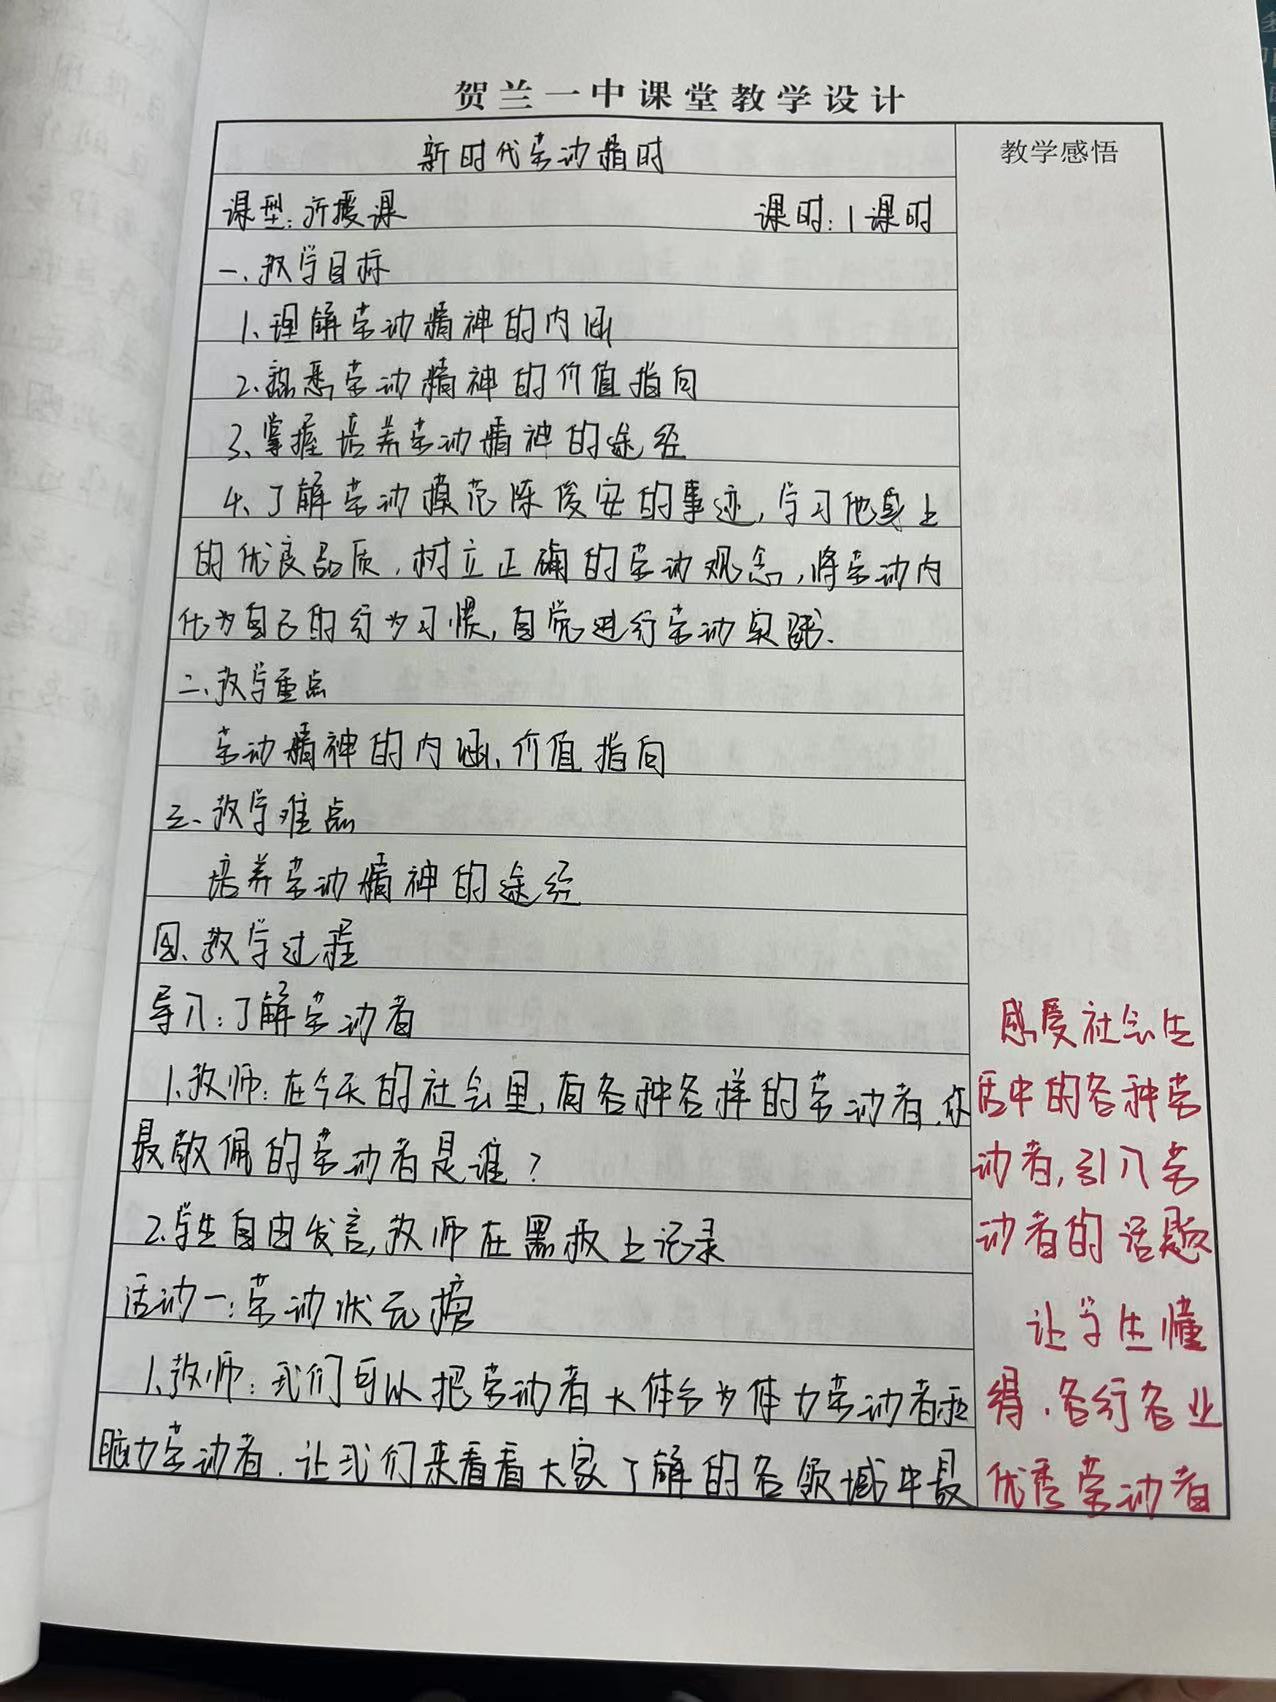 贺兰一中课堂教学设计
新时代劳动精时
教学感悟
课型:新授课 课时:1课时
一、教学目标
1、理解劳动精神的内涵
2、熟悉劳动精神的价值指向
3、掌握培养劳动精神的途径
4、了解劳动模范陈俊安的事迹,学习他身上
的优良品质,树立正确的劳动观念,将劳动内
化为自己的行为习惯,自觉进行劳动实践.
二、教学重点
劳动精神的内涵、价值指向
三、教学难点
培养劳动精神的途径
四、教学过程
导入:了解劳动者
1、教师:在今天的社会里,有各种各样的劳动者,你
最敬佩的劳动者是谁?
2、学生自由发言,教师在黑板上记录
活动一:劳动状元榜
1、教师:我们可以把劳动者大体分为体力劳动者和
脑力劳动者.让我们来看看大家了解的各领域中最
感受社会生
活中的各种劳
动者,引入劳
动者的话题
让学生懂
得.各行各业
优秀劳动者